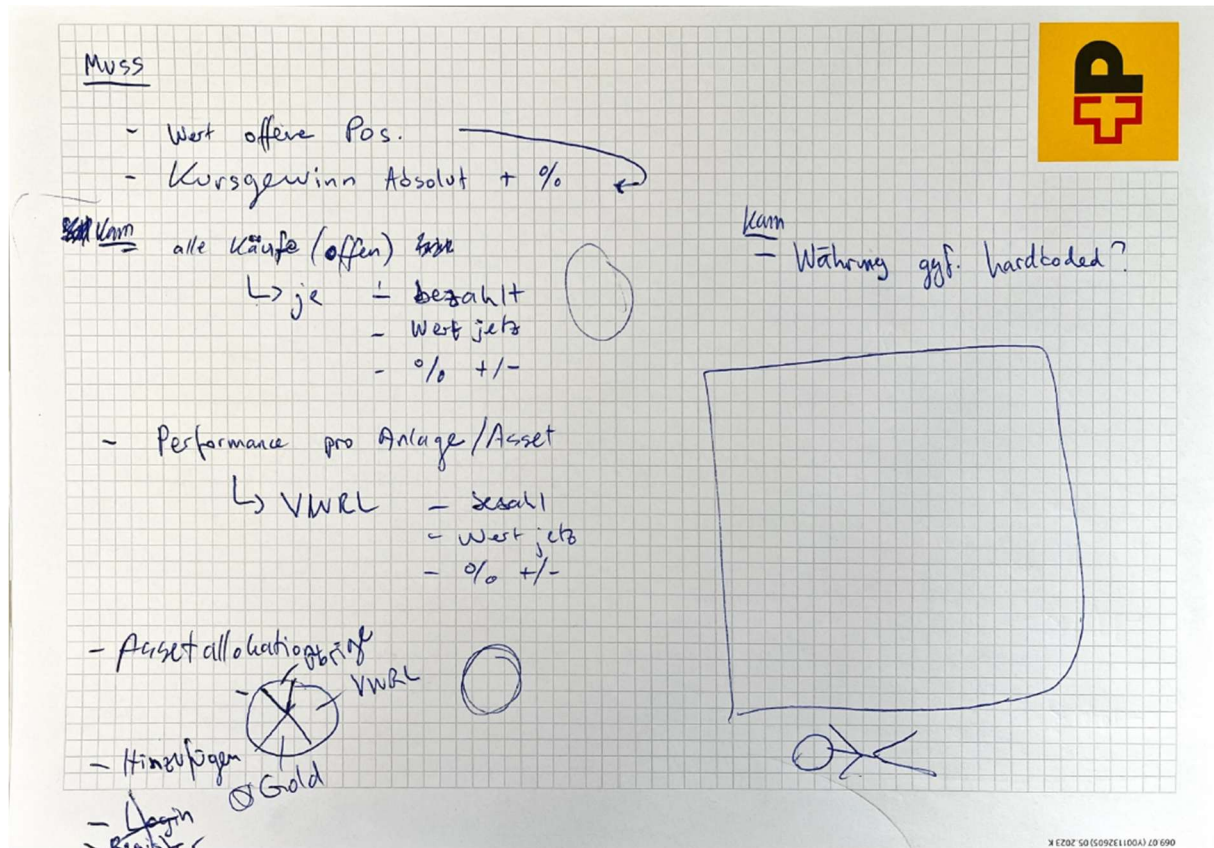 Muss
- Wert offene Pos.
- Kursgewinn Absolut + %
Kann alle Käufe (offen)
↳ je - bezahlt
- Wert jetz
- % +/-
- Performance pro Anlage/Asset
↳ VWRL - bezahl
- Wert jetz
- % +/-
- Assetallokation
VWRL
- Hinzufügen
Gold
- Login
- Register
Kann
- Währung ggf. hardcoded?
P
069.07 (Y001132605) 05.2023 K